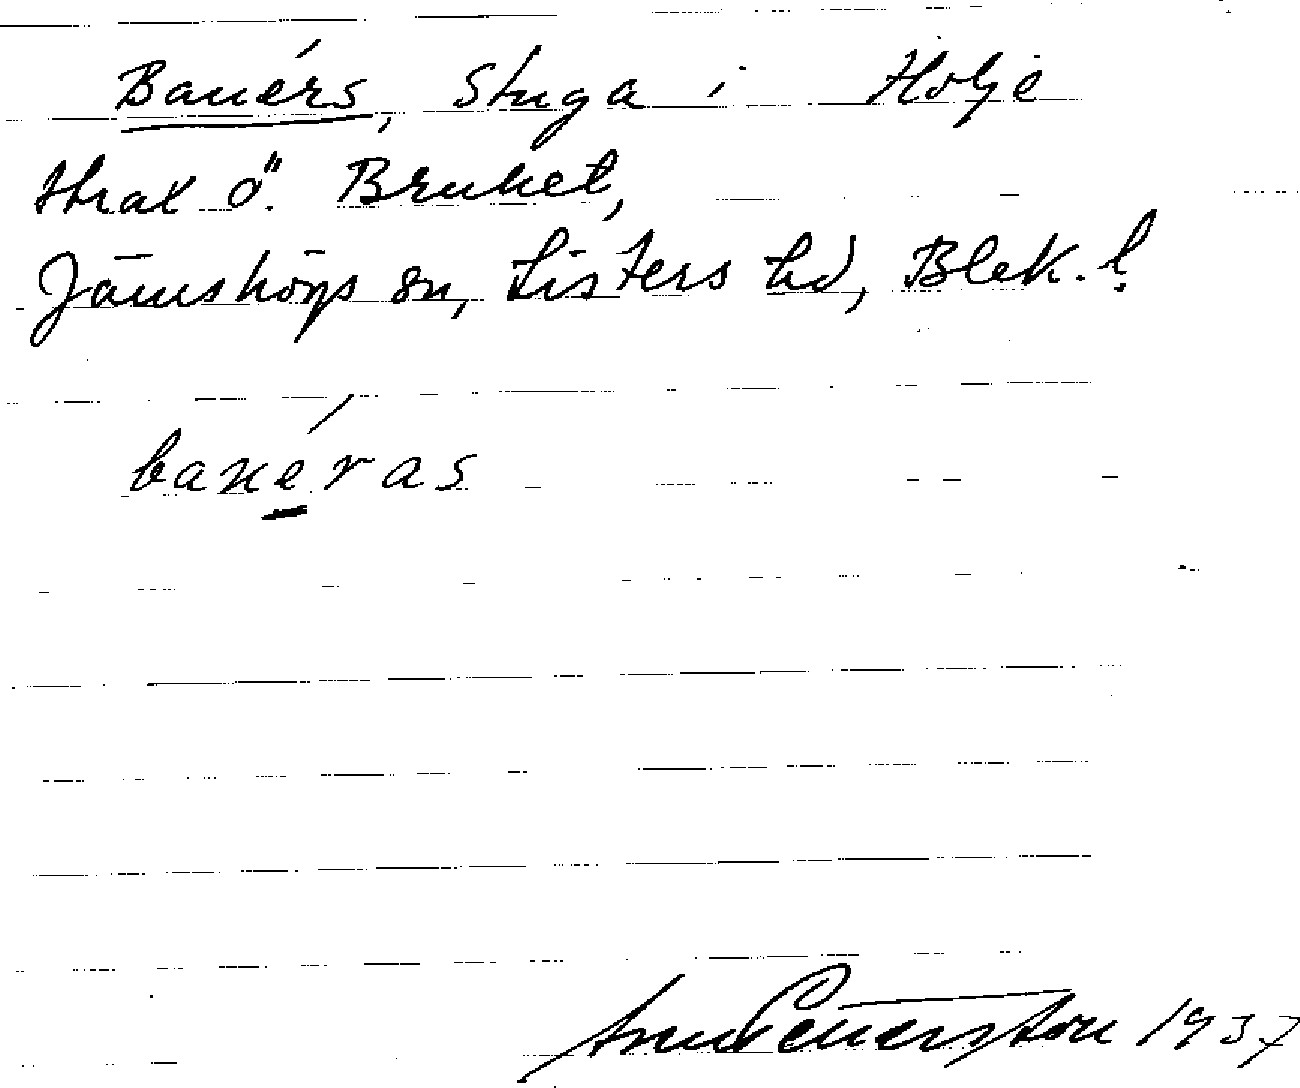 Banérs, Stuga i Holje
strax ö. Bruket,
Jämshögs sn, Listers hd, Blek. l.
banéras
1937